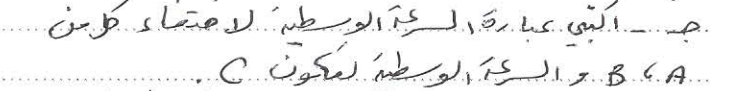 جـ - اكتبي عبارة السرعة الوسطية لاختفاء كل من
A ، B والسرعة الوسطية لتكون C .